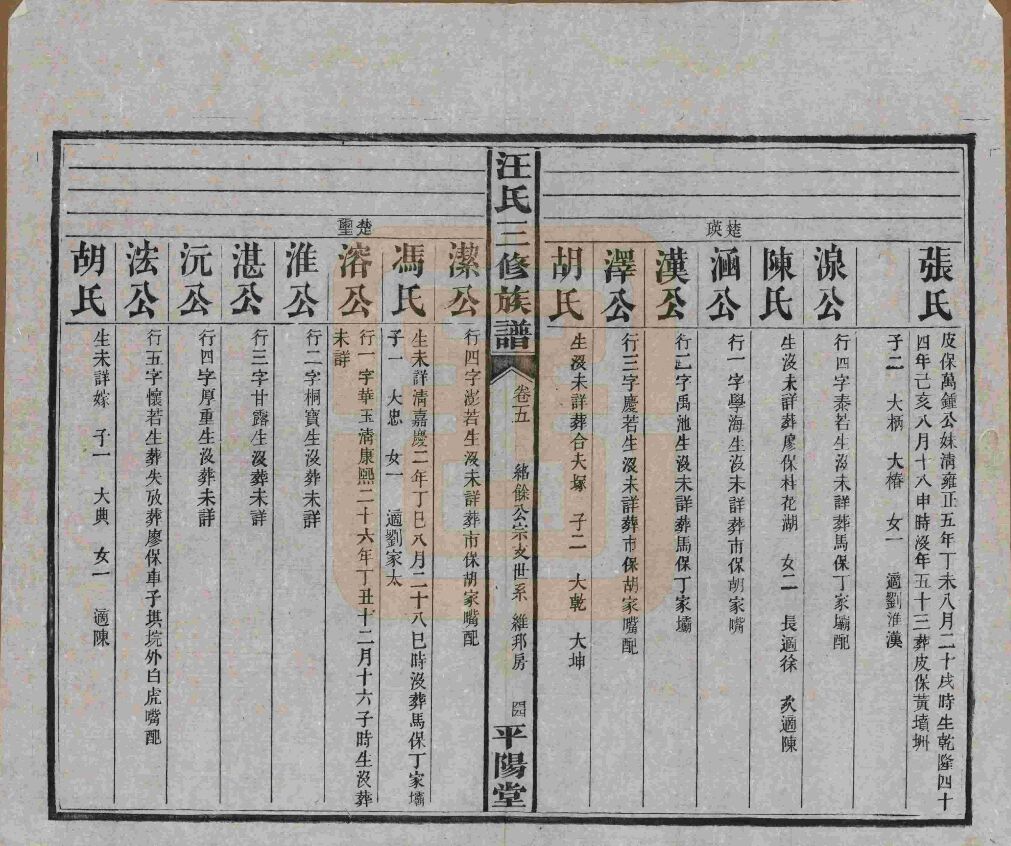 張氏
皮保萬鍾公妹清雍正五年丁未八月二十戌時生乾隆四十
四年己亥八月十八申時沒年五十三葬皮保黃墳圳
子二 大柄 大椿 女一 適劉淮漢
湶公
行四字泰若生沒未詳葬馬保丁家壩配
陳氏
生沒未詳葬廖保朴花湖 女二 長適徐 次適陳
楚瑛
涵公
行一字學海生沒未詳葬市保胡家嘴
漢公
行二字禹池生沒未詳葬馬保丁家壩
澤公
行三字慶若生沒未詳葬市保胡家嘴配
胡氏
生沒未詳葬合夫塚 子二 大乾 大坤
汪氏三修族譜
卷五 緒餘公宗支世系 維邦房 四
平陽堂
潔公
行四字澎若生沒未詳葬市保胡家嘴配
馮氏
生未詳清嘉慶二年丁巳八月二十八巳時沒葬馬保丁家壩
子一 大忠 女一 適劉家太
楚璽
溶公
行一字華玉清康熙二十六年丁丑十二月十六子時生沒葬
未詳
淮公
行二字桐寶生沒葬未詳
湛公
行三字甘露生沒葬未詳
沅公
行四字厚重生沒葬未詳
浤公
行五字懷若生葬失攷葬廖保車子塅垸外白虎嘴配
胡氏
生未詳嫁 子一 大典 女一 適陳